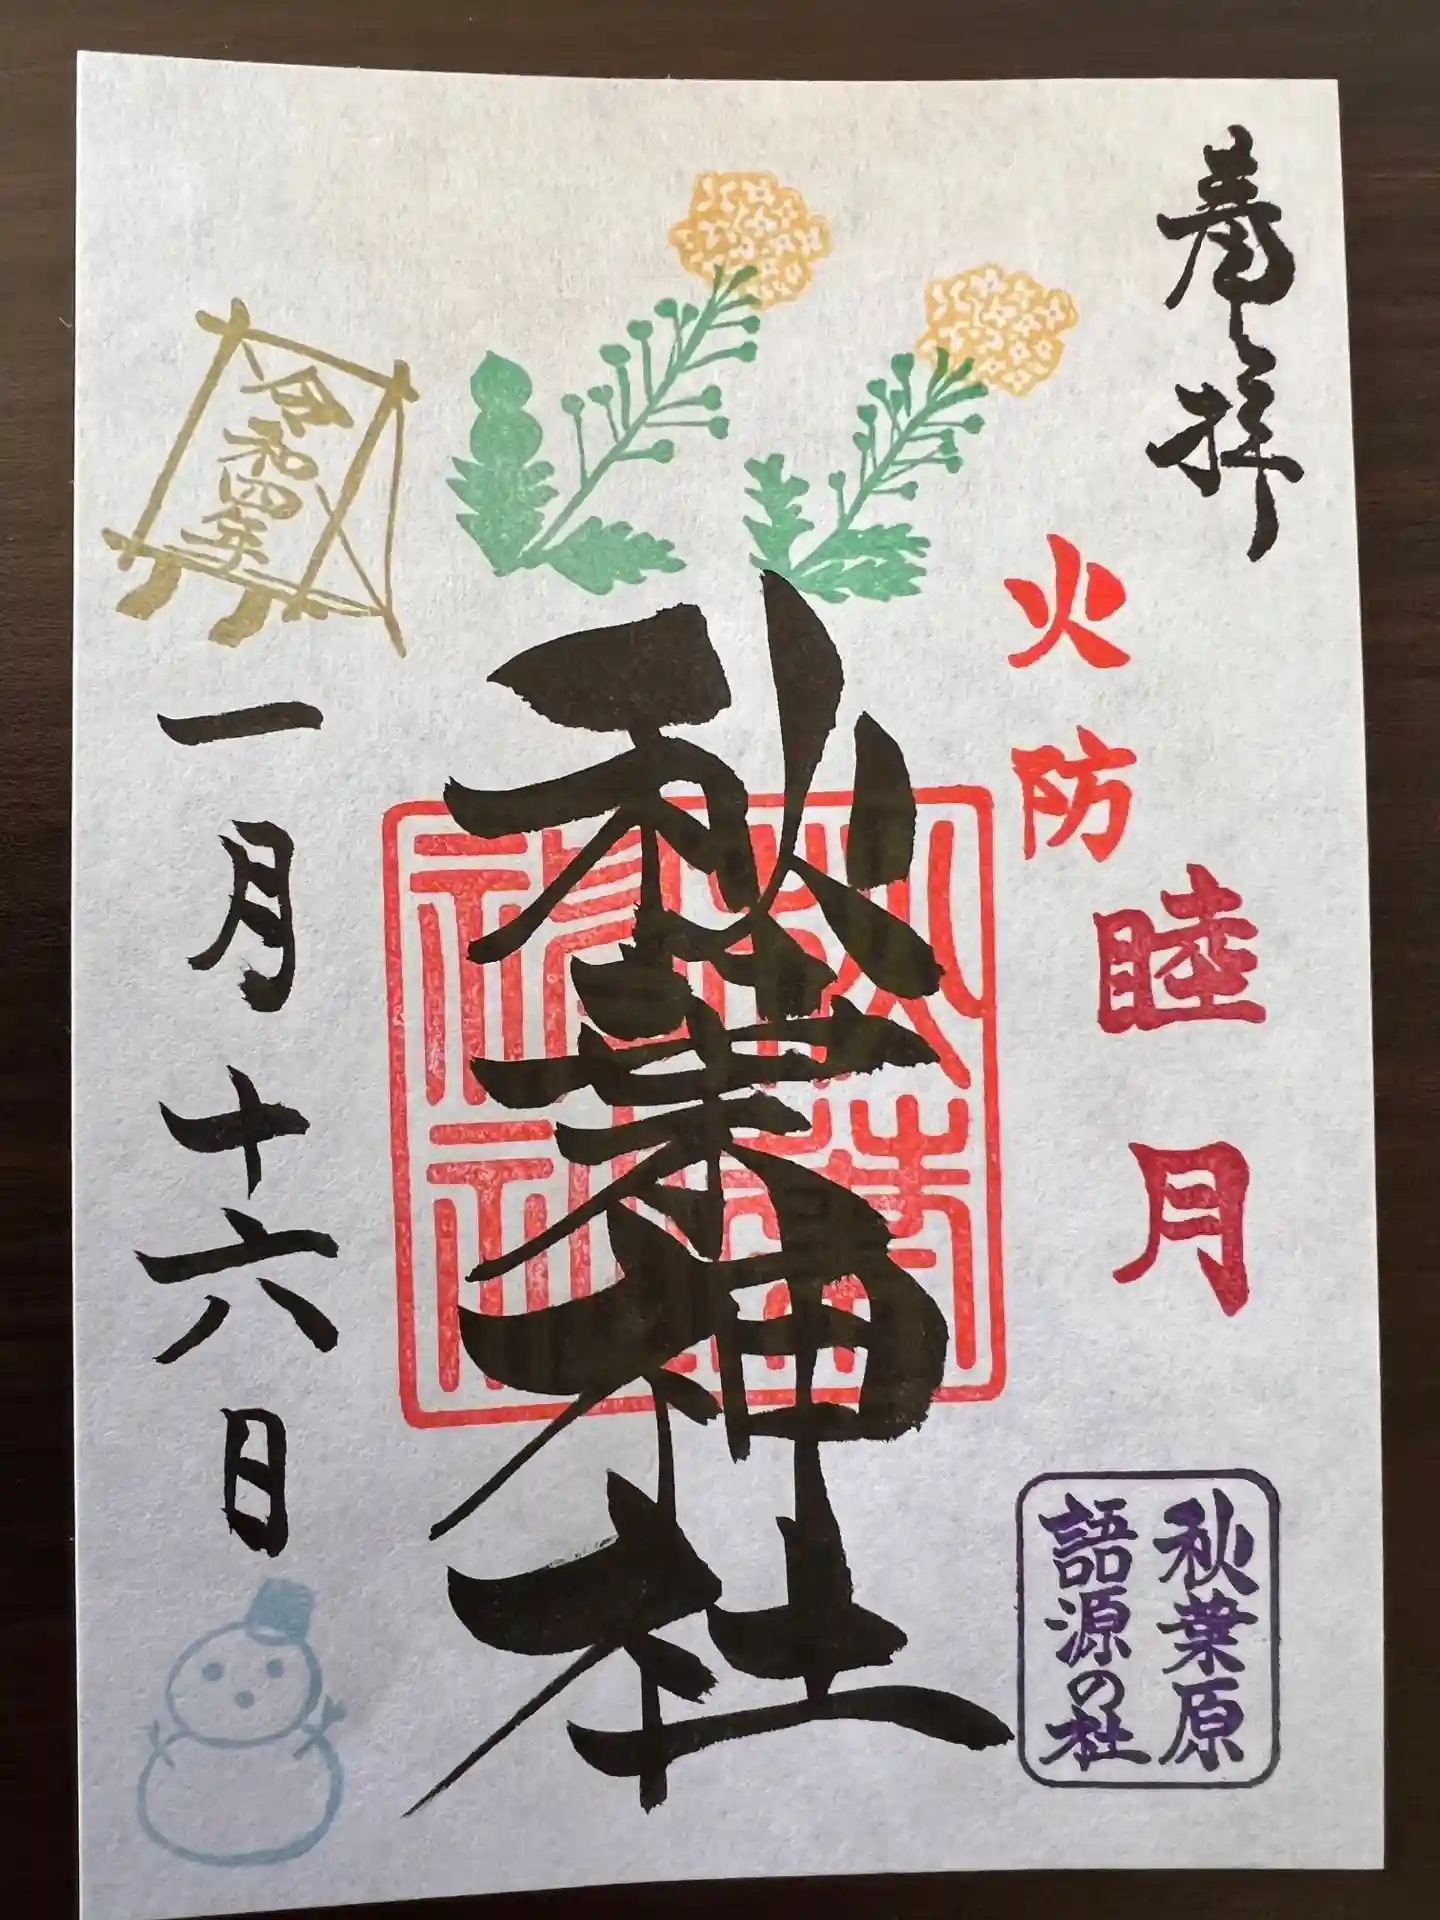 奉拝
火防
睦月
秋葉原
語源の社
秋葉神社
秋葉
神社
令和四年
一月十六日